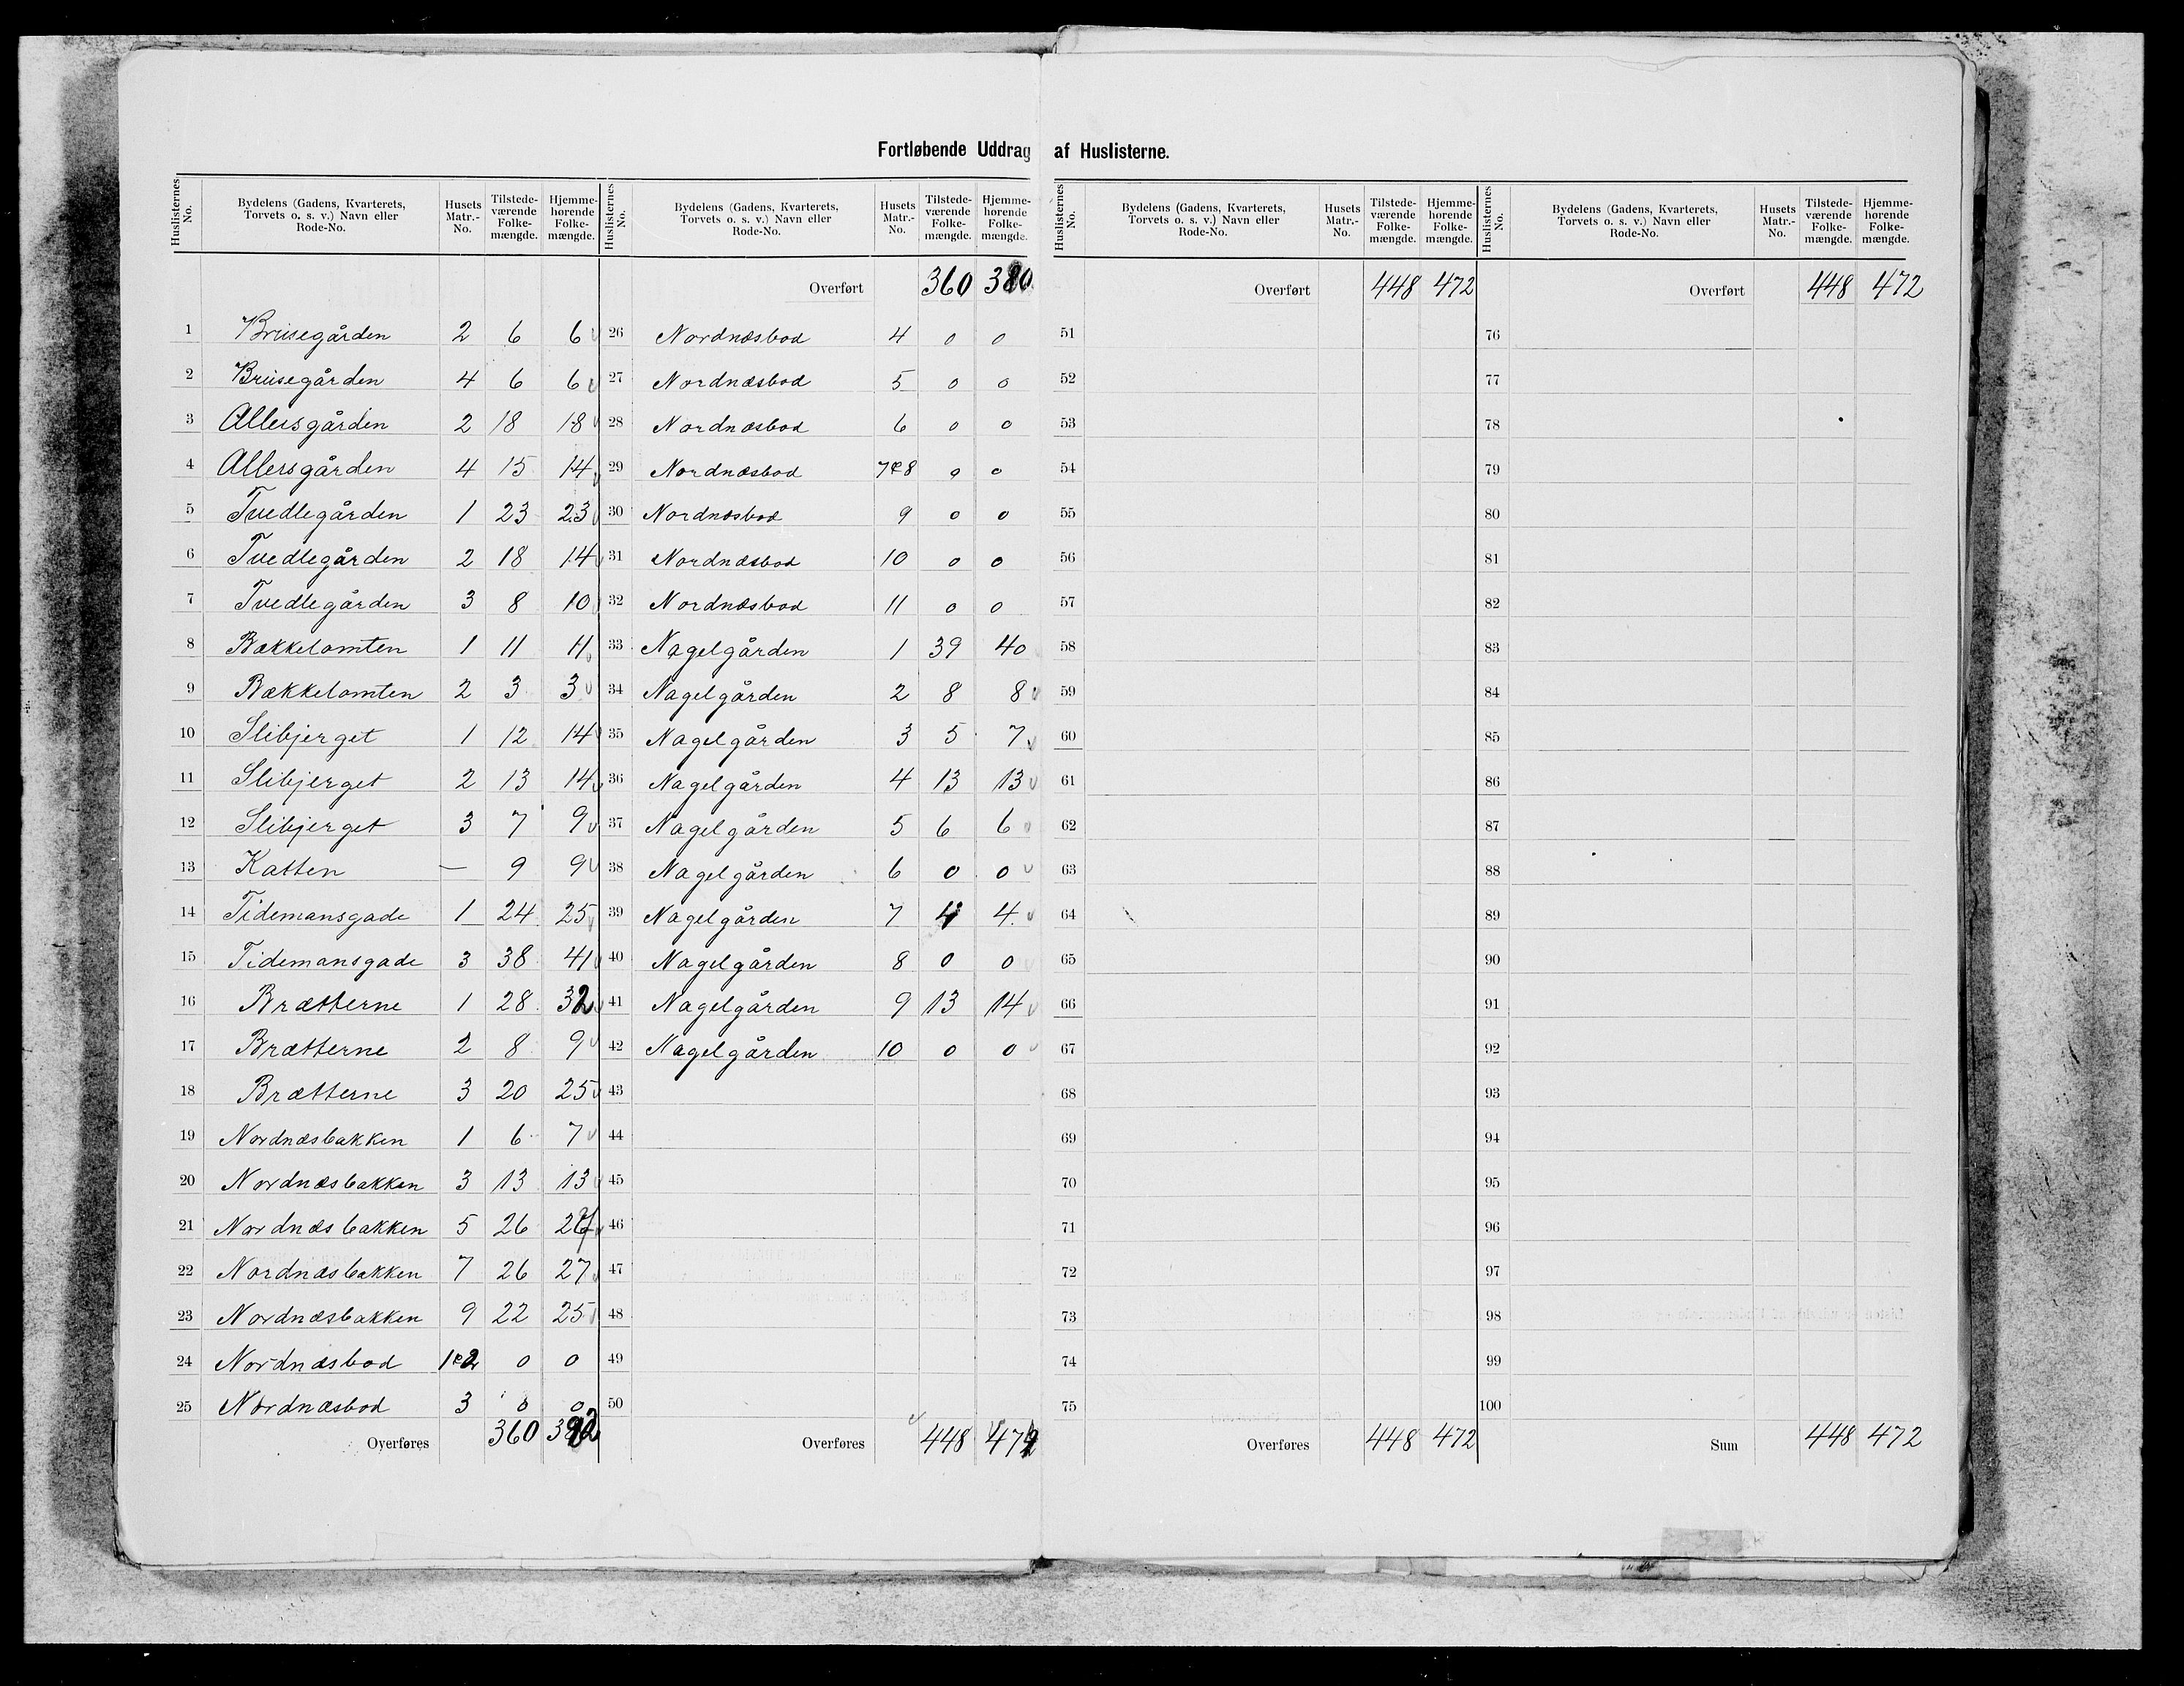 Fortløbende Uddrag af Huslisterne.
Huslisternes No. Bydelens (Gadens, Kvarterets, Torvets o. s. v.) Navn eller Rode-No. Husets Matr.-No. Tilstede-værende Folke-mængde. Hjemme-hørende Folke-mængde.
1 Brüsegården 2 6 6
2 Brüsegården 4 6 6
3 Allersgården 2 18 18
4 Allersgården 4 15 14
5 Tvedlegården 1 23 23
6 Tvedlegården 2 18 14
7 Tvedlegården 3 8 10
8 Bækkelomten 1 11 11
9 Bækkelomten 2 3 3
10 Slibjerget 1 12 14
11 Slibjerget 2 13 14
12 Slibjerget 3 7 9
13 Katten — 9 9
14 Tidemansgade 1 24 25
15 Tidemansgade 3 38 41
16 Brætterne 1 28 32
17 Brætterne 2 8 9
18 Brætterne 3 20 25
19 Nordnæsbakken 1 6 7
20 Nordnæsbakken 3 13 13
21 Nordnæsbakken 5 26
22 Nordnæsbakken 7 26 27
23 Nordnæsbakken 9 22 25
24 Nordnæsbod 1&2 0 0
25 Nordnæsbod 3 0 0
Overføres 360
Huslisternes No. Bydelens (Gadens, Kvarterets, Torvets o. s. v.) Navn eller Rode-No. Husets Matr.-No. Tilstede-værende Folke-mængde. Hjemme-hørende Folke-mængde.
Overført 360
26 Nordnæsbod 4 0 0
27 Nordnæsbod 5 0 0
28 Nordnæsbod 6 0 0
29 Nordnæsbod 7&8 0 0
30 Nordnæsbod 9 0 0
31 Nordnæsbod 10 0 0
32 Nordnæsbod 11 0 0
33 Nagelgården 1 39 40
34 Nagelgården 2 8 8
35 Nagelgården 3 5 7
36 Nagelgården 4 13 13
37 Nagelgården 5 6 6
38 Nagelgården 6 0 0
39 Nagelgården 7 4 4
40 Nagelgården 8 0 0
41 Nagelgården 9 13 14
42 Nagelgården 10 0 0
43
44
45
46
47
48
49
50
Overføres 448 472
Huslisternes No. Bydelens (Gadens, Kvarterets, Torvets o. s. v.) Navn eller Rode-No. Husets Matr.-No. Tilstede-værende Folke-mængde. Hjemme-hørende Folke-mængde.
Overført 448 472
51
52
53
54
55
56
57
58
59
60
61
62
63
64
65
66
67
68
69
70
71
72
73
74
75
Overføres 448 472
Huslisternes No. Bydelens (Gadens, Kvarterets, Torvets o. s. v.) Navn eller Rode-No. Husets Matr.-No. Tilstede-værende Folke-mængde. Hjemme-hørende Folke-mængde.
Overført 448 472
76
77
78
79
80
81
82
83
84
85
86
87
88
89
90
91
92
93
94
95
96
97
98
99
100
Sum 448 472